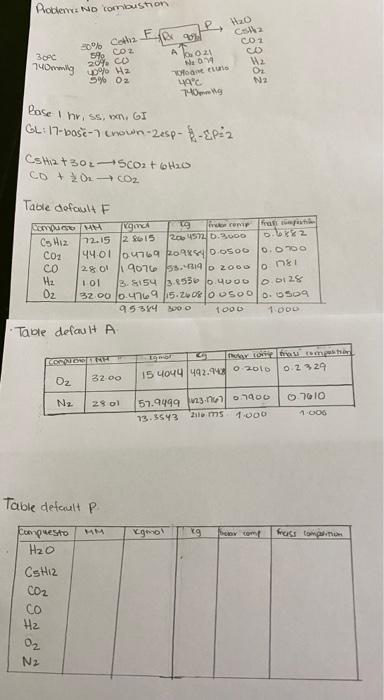 Problem: NO combustion
F Rx 90% P H2O
C5H12
CO2
CO
H2
O2
N2
30°C
740mmHg
30% C5H12
5% CO2
20% CO
40% H2
5% O2
A O2 0.21
N2 0.79
49°C
740mmHg
Base 1 hr, ss, rxn, GI
C5H12 + 3O2 → 5CO2 + 6H2O
CO + ½ O2 → CO2
Table default F
Compuesto MM Kgmol Kg molar comp frass composition
C5H12 72.15 2.8615 206.4572 0.3000 0.6882
CO2 44.01 0.4769 20.9854 0.0500 0.0700
CO 28.01 1.9076 53.4319 0.2000 0.1781
H2 1.01 3.8154 3.8536 0.4000 0.0128
O2 32.00 0.4769 15.2608 0.0500 0.0509
9.5384 300.0 1.000 1.000
Table default A
Compuesto MM Kgmol Kg molar comp frass composition
O2 32.00 15.4044 492.948 0.2010 0.2329
N2 28.01 57.9499 1623.1767 0.7900 0.7610
73.3543 2116.1775 1.000 1.000
Table default P.
Compuesto MM Kgmol Kg molar comp frass composition
H2O
C5H12
CO2
CO
H2
O2
N2